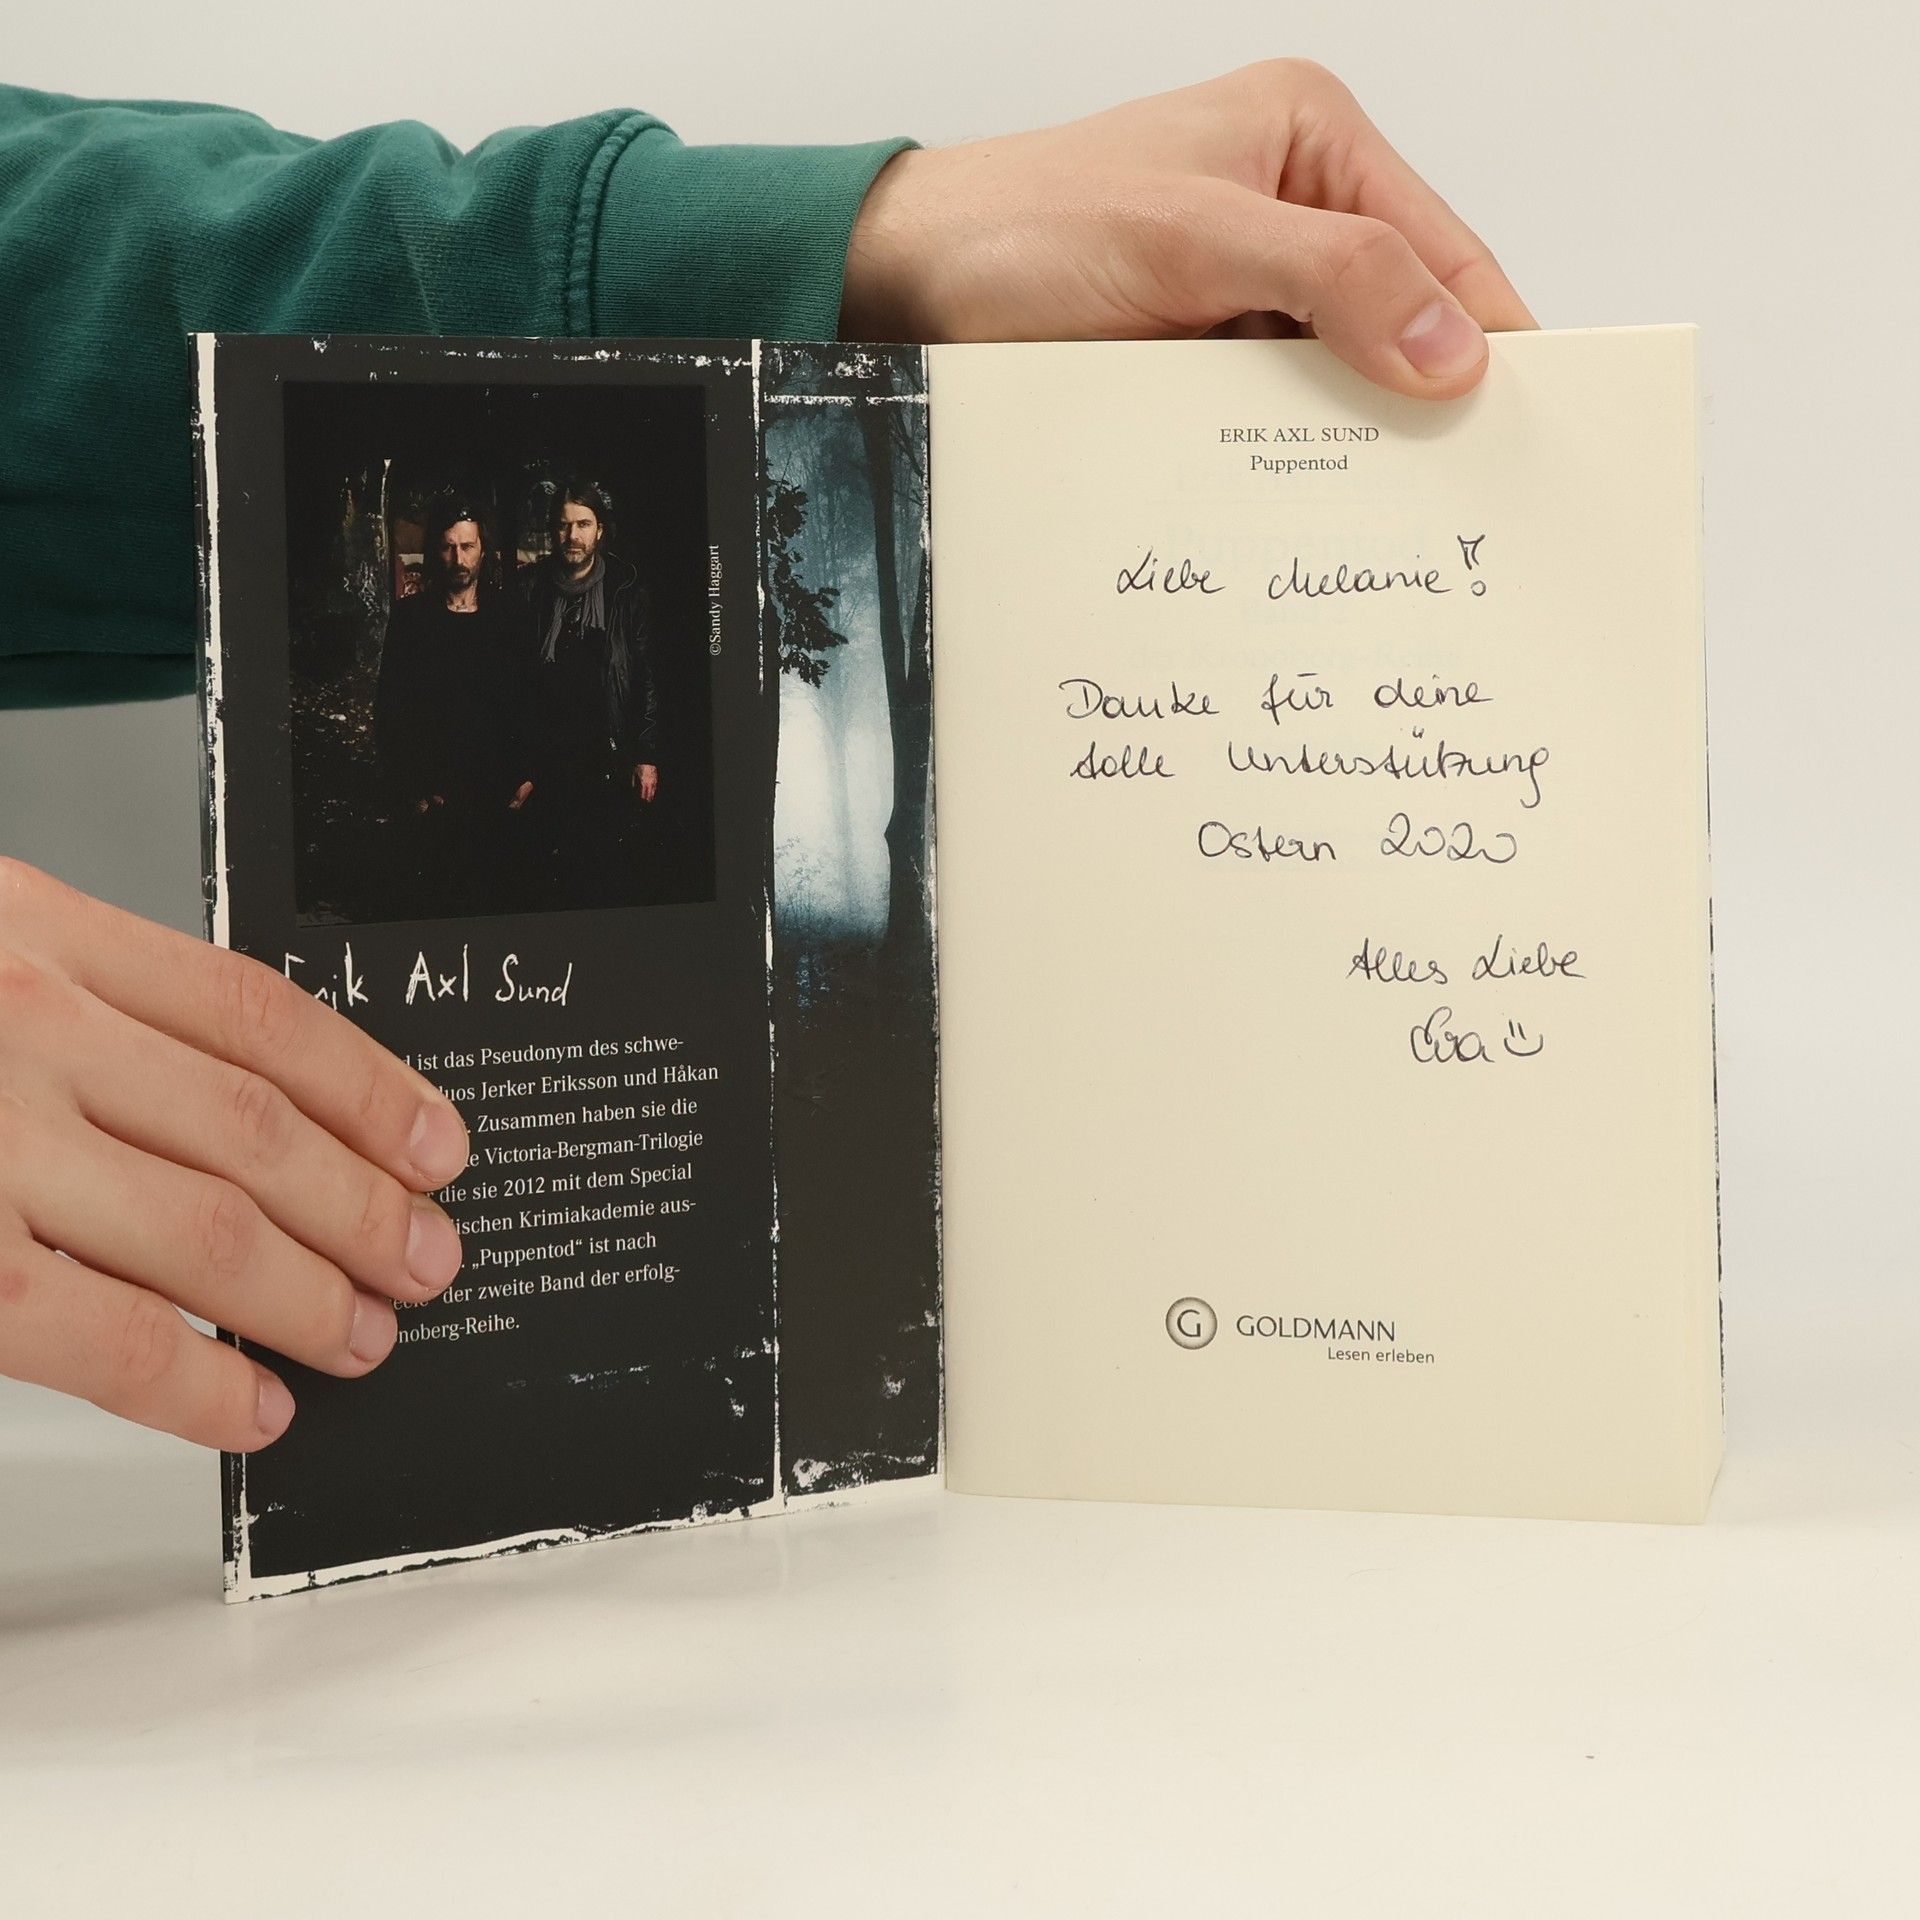 ©Sandy Haggart
Erik Axl Sund
ist das Pseudonym des schwe-
Jerker Eriksson und Håkan
. Zusammen haben sie die
Victoria-Bergman-Trilogie
die sie 2012 mit dem Special
Krimiakademie aus-
. „Puppentod“ ist nach
der zweite Band der erfolg-
noberg-Reihe.
ERIK AXL SUND
Puppentod
Liebe Melanie!
Danke für deine
tolle Unterstützung
Ostern 2020
Alles Liebe
Eva
G GOLDMANN
Lesen erleben